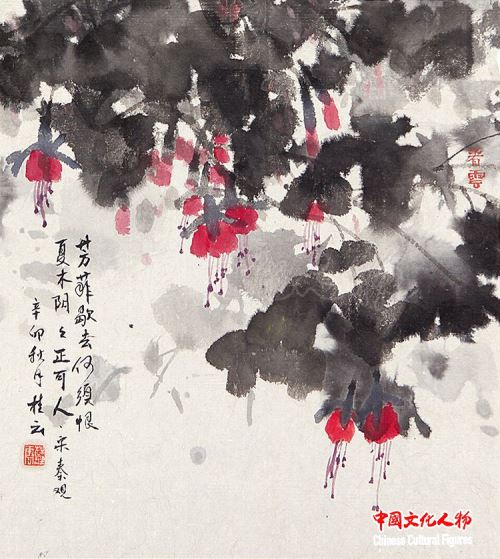 芳菲歇去何須恨
夏木阴々正可人 宋秦观
辛卯秋月桂云
中國文化人物
Chinese Cultural Figures